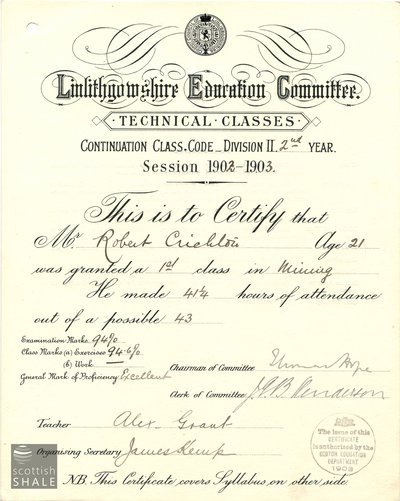 Linlithgowshire Education Committee.
TECHNICAL CLASSES
CONTINUATION CLASS. CODE _ DIVISION II. 2nd YEAR.
Session 1902-1903.
This is to Certify that
Mr Robert Crichton Age 21
was granted a 1st class in Mining
He made 41¼ hours of attendance
out of a possible 43
Examination Marks 94%
Class Marks (a) Exercises 94.6%
(b) Work —
General Mark of Proficiency Excellent
Chairman of Committee Hope
Clerk of Committee Henderson
Teacher Alex. Grant
Organising Secretary James Kemp
The Issue of this
CERTIFICATE
is authorised by the
SCOTCH EDUCATION
DEPARTMENT
1903
NB. This Certificate covers Syllabus on other side.
scottish
SHALE